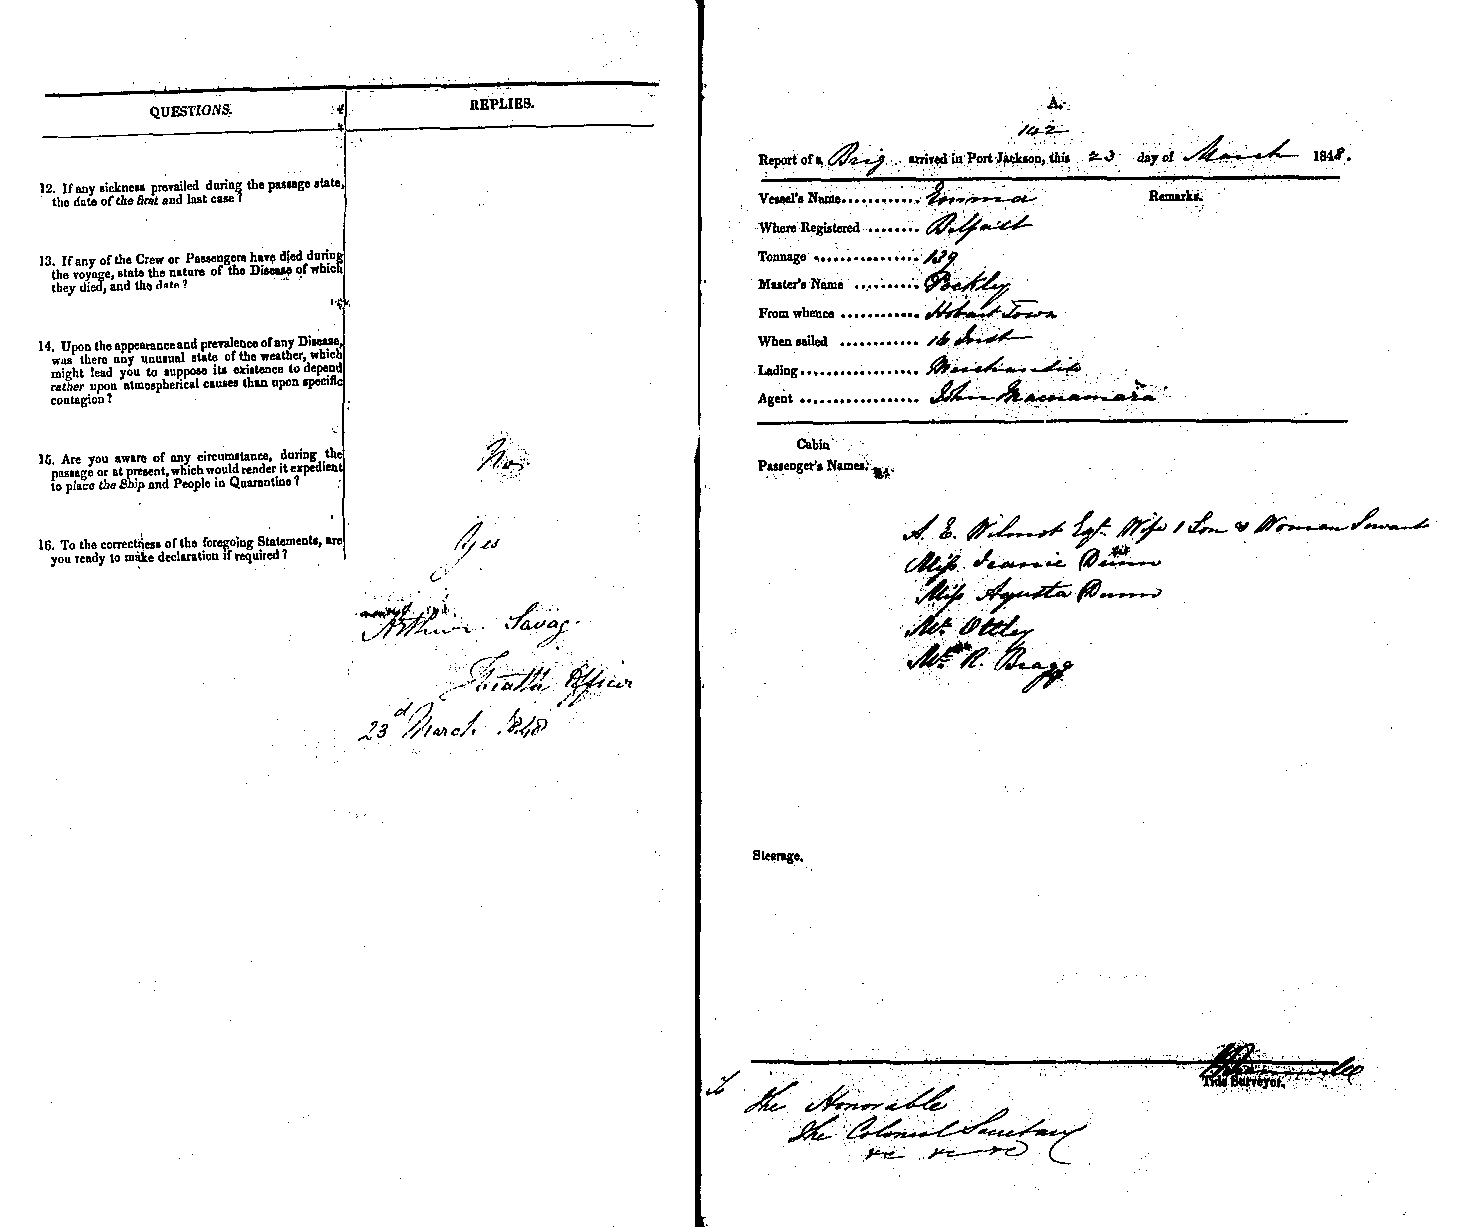 QUESTIONS.
REPLIES.
12. If any sickness prevailed during the passage state,
the date of the first and last case?
13. If any of the Crew or Passengers have died during
the voyage, state the nature of the Disease of which
they died, and the date?
14. Upon the appearance and prevalence of any Disease,
was there any unusual state of the weather, which
might lead you to suppose its existence to depend
rather upon atmospherical causes than upon specific
contagion?
15. Are you aware of any circumstance, during the
passage or at present, which would render it expedient
to place the Ship and People in Quarantine?
No
16. To the correctness of the foregoing Statements, are
you ready to make declaration if required?
Yes
Arthur Savage
Health Officer
23d March 1848
A.
142
Report of a Brig arrived in Port Jackson, this 23 day of March 1848.
Vessel's Name............ Emma
Remarks.
Where Registered ........ Belfast
Tonnage ................ 139
Master's Name .......... Pockley
From whence ............ Hobart Town
When sailed ............ 16 Inst
Lading.................. Merchandise
Agent .................. John Macnamara
Cabin
Passenger's Names.
A. E. Wilmot Esqr. Wife 1 Son & Woman Servant
Miss Jeanie Dunn
Miss Agusta Dunn
Mr. Ottley
Mr. R. Bragg
Steerage.
Tide Surveyor.
To
The Honorable
The Colonial Secretary
&c &c &c